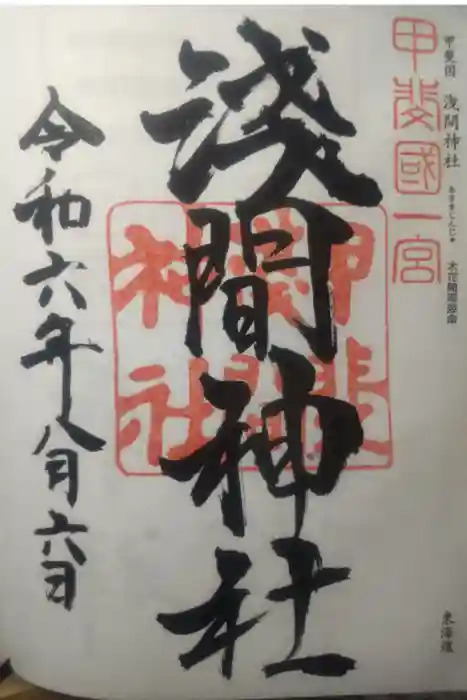 甲斐国 浅間神社 あさまじんじゃ 木花開耶姫命
東海道
甲斐國一宮
淺間神社
甲斐
淺間
神社
令和六年八月六日